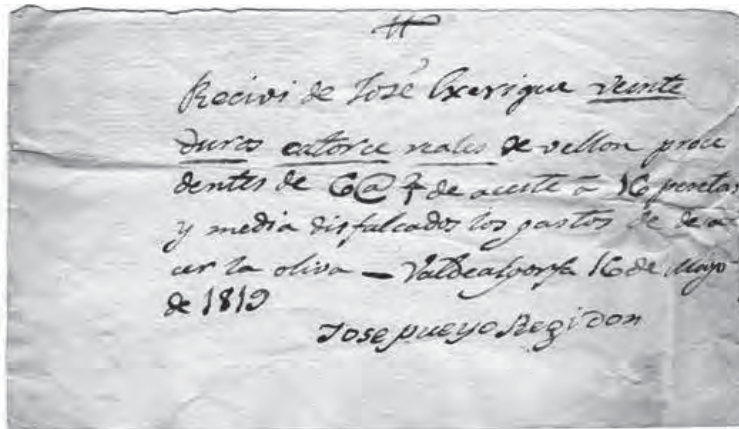 Recivi de José Exerique veinte
duros catorce reales de vellon proce
dentes de 6@ de aceite a 16 pesetas
y media disfalcados los gastos de dea
cer la oliva – Valdealgorfa 16 de Mayo
de 1819
Jose pueyo Regidor